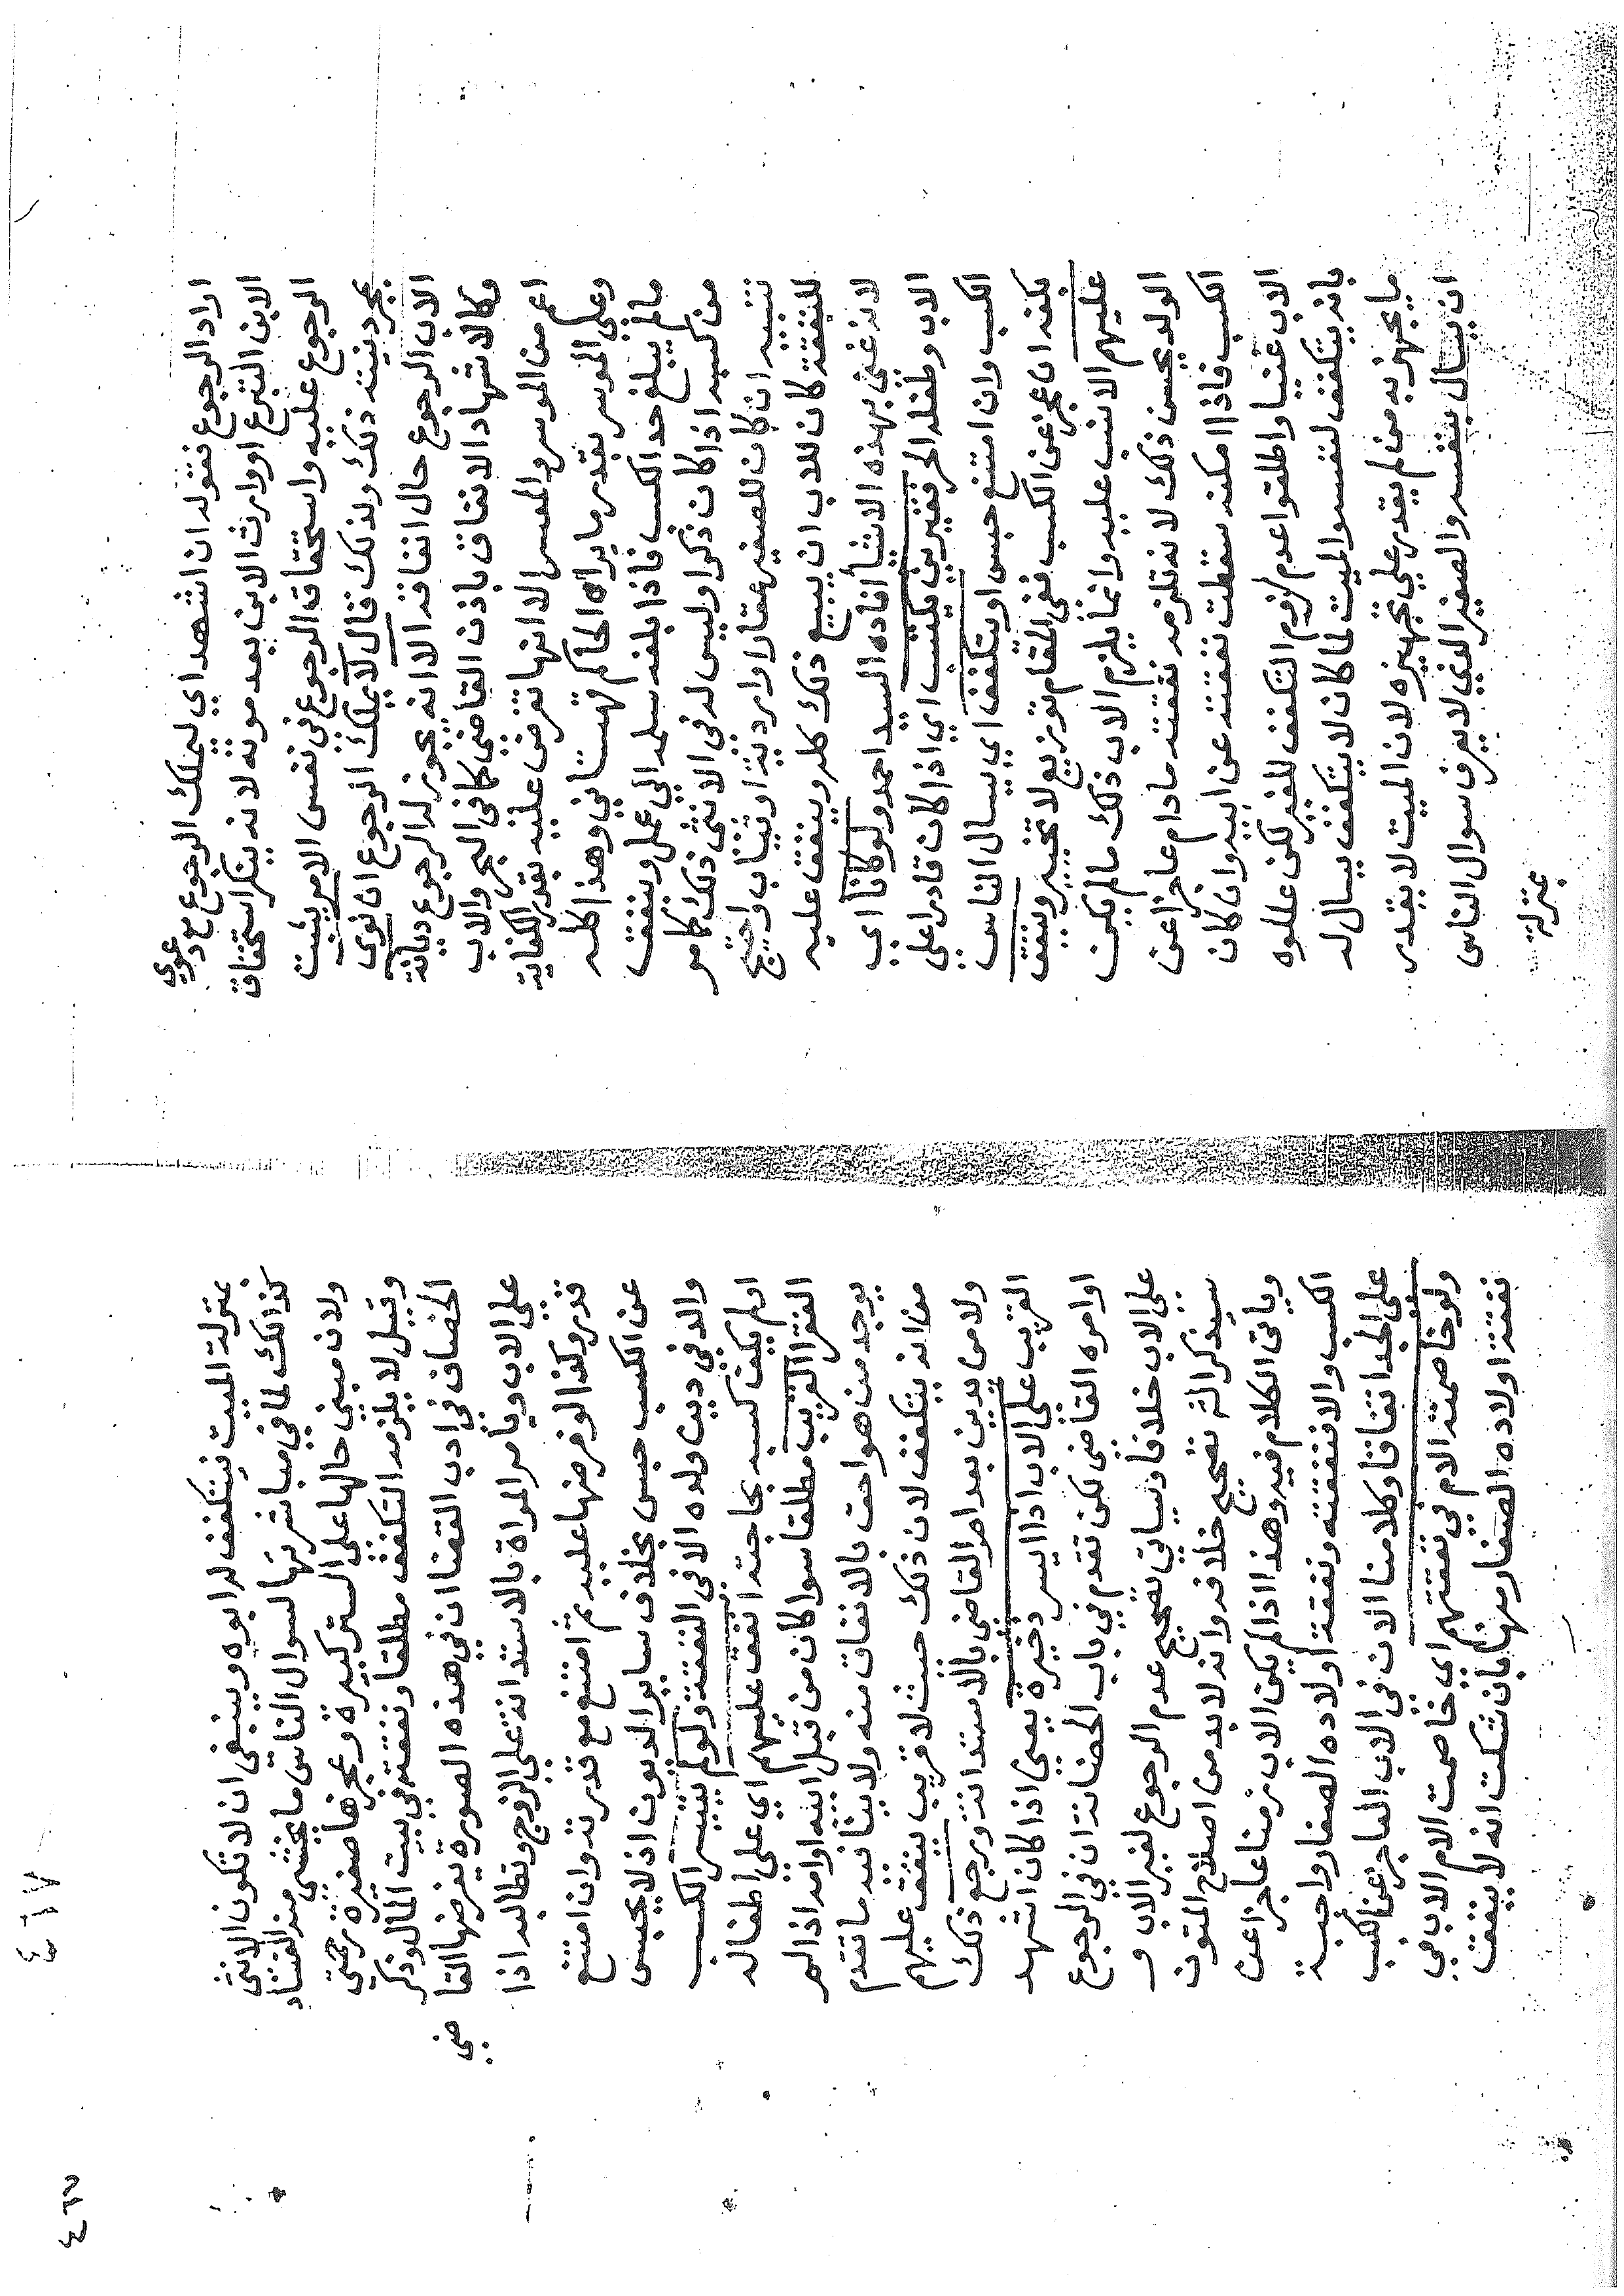 اراد الرجوع فقوله ان اشهد اي ليملك الرجوع مع دعوى
الابن التبرع او وارث الابن بعد موته لانه ينكر استحقاق
الرجوع عليه واستحقاق الرجوع في نفس الامر يثبت
بمجرد نيته ذلك ولذلك قال لا يملك الرجوع ان نوى
الاب الرجوع حال انفاقه الا انه يجوز له الرجوع ديانة
وكالاشهاد الانفاق باذن القاضي كما في البحر والاب
اعم من الموسر والمعسر الا انها تفرض عليه بقدر الكفاية
وعلى الموسر بقدر ما يراه الحاكم قهستاني وهذا كله
ما لم يبلغ حد الكسب فاذا بلغه سلمه الى عمل وينفق
من كسبه اذا كان ذكرا وليس له في الانثى ذلك كما مر
تنبيه ان كان للصغير عقارا وارديةً او ثيابا واحتيج
للنفقة كان للاب ان يبيع ذلك كله وينفق عليه
لانه غني بهذه الاشيأ افاده السيد احمد ولو كانا اي
الاب وطفله الحر فقيرين يكتسب اي اذا كان قادرا على
الكسب وان امتنع حبس او يتكفف اي يسال الناس
بكفه ان عجز عن الكسب ففي المقام توزيع لا تخيير وينفق
عليهم الانسب عليه وانما يلزم الاب ذلك ما لم يكن
الولد يحسن ذلك لانه تلزمه نفقته ما دام عاجزا عن
الكسب فاذا امكنه سقطت نفقته عن ابيه وان كان
الاب غنيا واطلقوا عدم لزوم التكفف للغير لكن عللوه
بانه يتكفف لنفسه والميت لما كان لا يتكفف يسال له
ما يجهز به من لم يقدر على تجهيزه لان الميت لا يقدر
ان يسال بنفسه والصغير الذي لا يعرف سوال الناس
بمنزلة
٤٦٧
٤٦٧
بمنزلة الميت فيتكفف له ابوه وينبغي ان لا تكون الانثى
كذالك لما في مباشرتها لسوال الناس ما يخشي منه الفساد
ولان مبني حالها على الستر كبيرة وعجزها صغيرة رحمتي
وقيل لا يلزمه التكفف مطلقا ونفقته في بيت المال وذكر
الخصاف في ادب القضا ان في هذه الصورة يفرضها القا
ضي
على الاب ويامر المراة بالاستدانة على الزوج وتطالبه اذا
قدر وكذا لو فرضها عليه ثم امتنع مع قدرته وان امتنع
عن الكسب حبس بخلاف ساير الديون اذ لا يحبس
والد في دين ولده الا في النفقة ولو لم يتيسر الكسب
او لم يكف كسبه بحاجته انفق عليهم اي على اطفاله
الفقرا القريب مطلقا سوا كان من قبل ابيه او امه اذا لم
يوجد من هو احق بالانفاق منه ولا ينافيه ما تقدم
من انه يتكفف لان ذلك حيث لا قريب ينفق عليهم
ولا من يدين بعد امر القاضي بالاستدانة ورجع ذلك
القريب على الاب اذا ايسر ذخيرة يعني اذا كان اشهد
او امره القاضي لكن تقدم في باب الحضانة ان في الرجوع
على الاب خلافا وسياتي تصحيح عدم الرجوع لغير الاب و
سيذكر الشـ تصحيح خلافه وانه لا بد من اصلاح المتون
وياتي الكلام فيه وهذا اذا لم يكن الاب زمنا عاجزا عن
الكسب والا فنفقته ونفقة اولاده الصغار واجبة
على الجد اتفاقا وكلامنا الان في الاب العاجز عن الكسب
ولو خاصمته الام في نفقتهم اي خاصمت الام الاب في
نفقة اولاده الصغار منها بان شكت انه لا ينفق